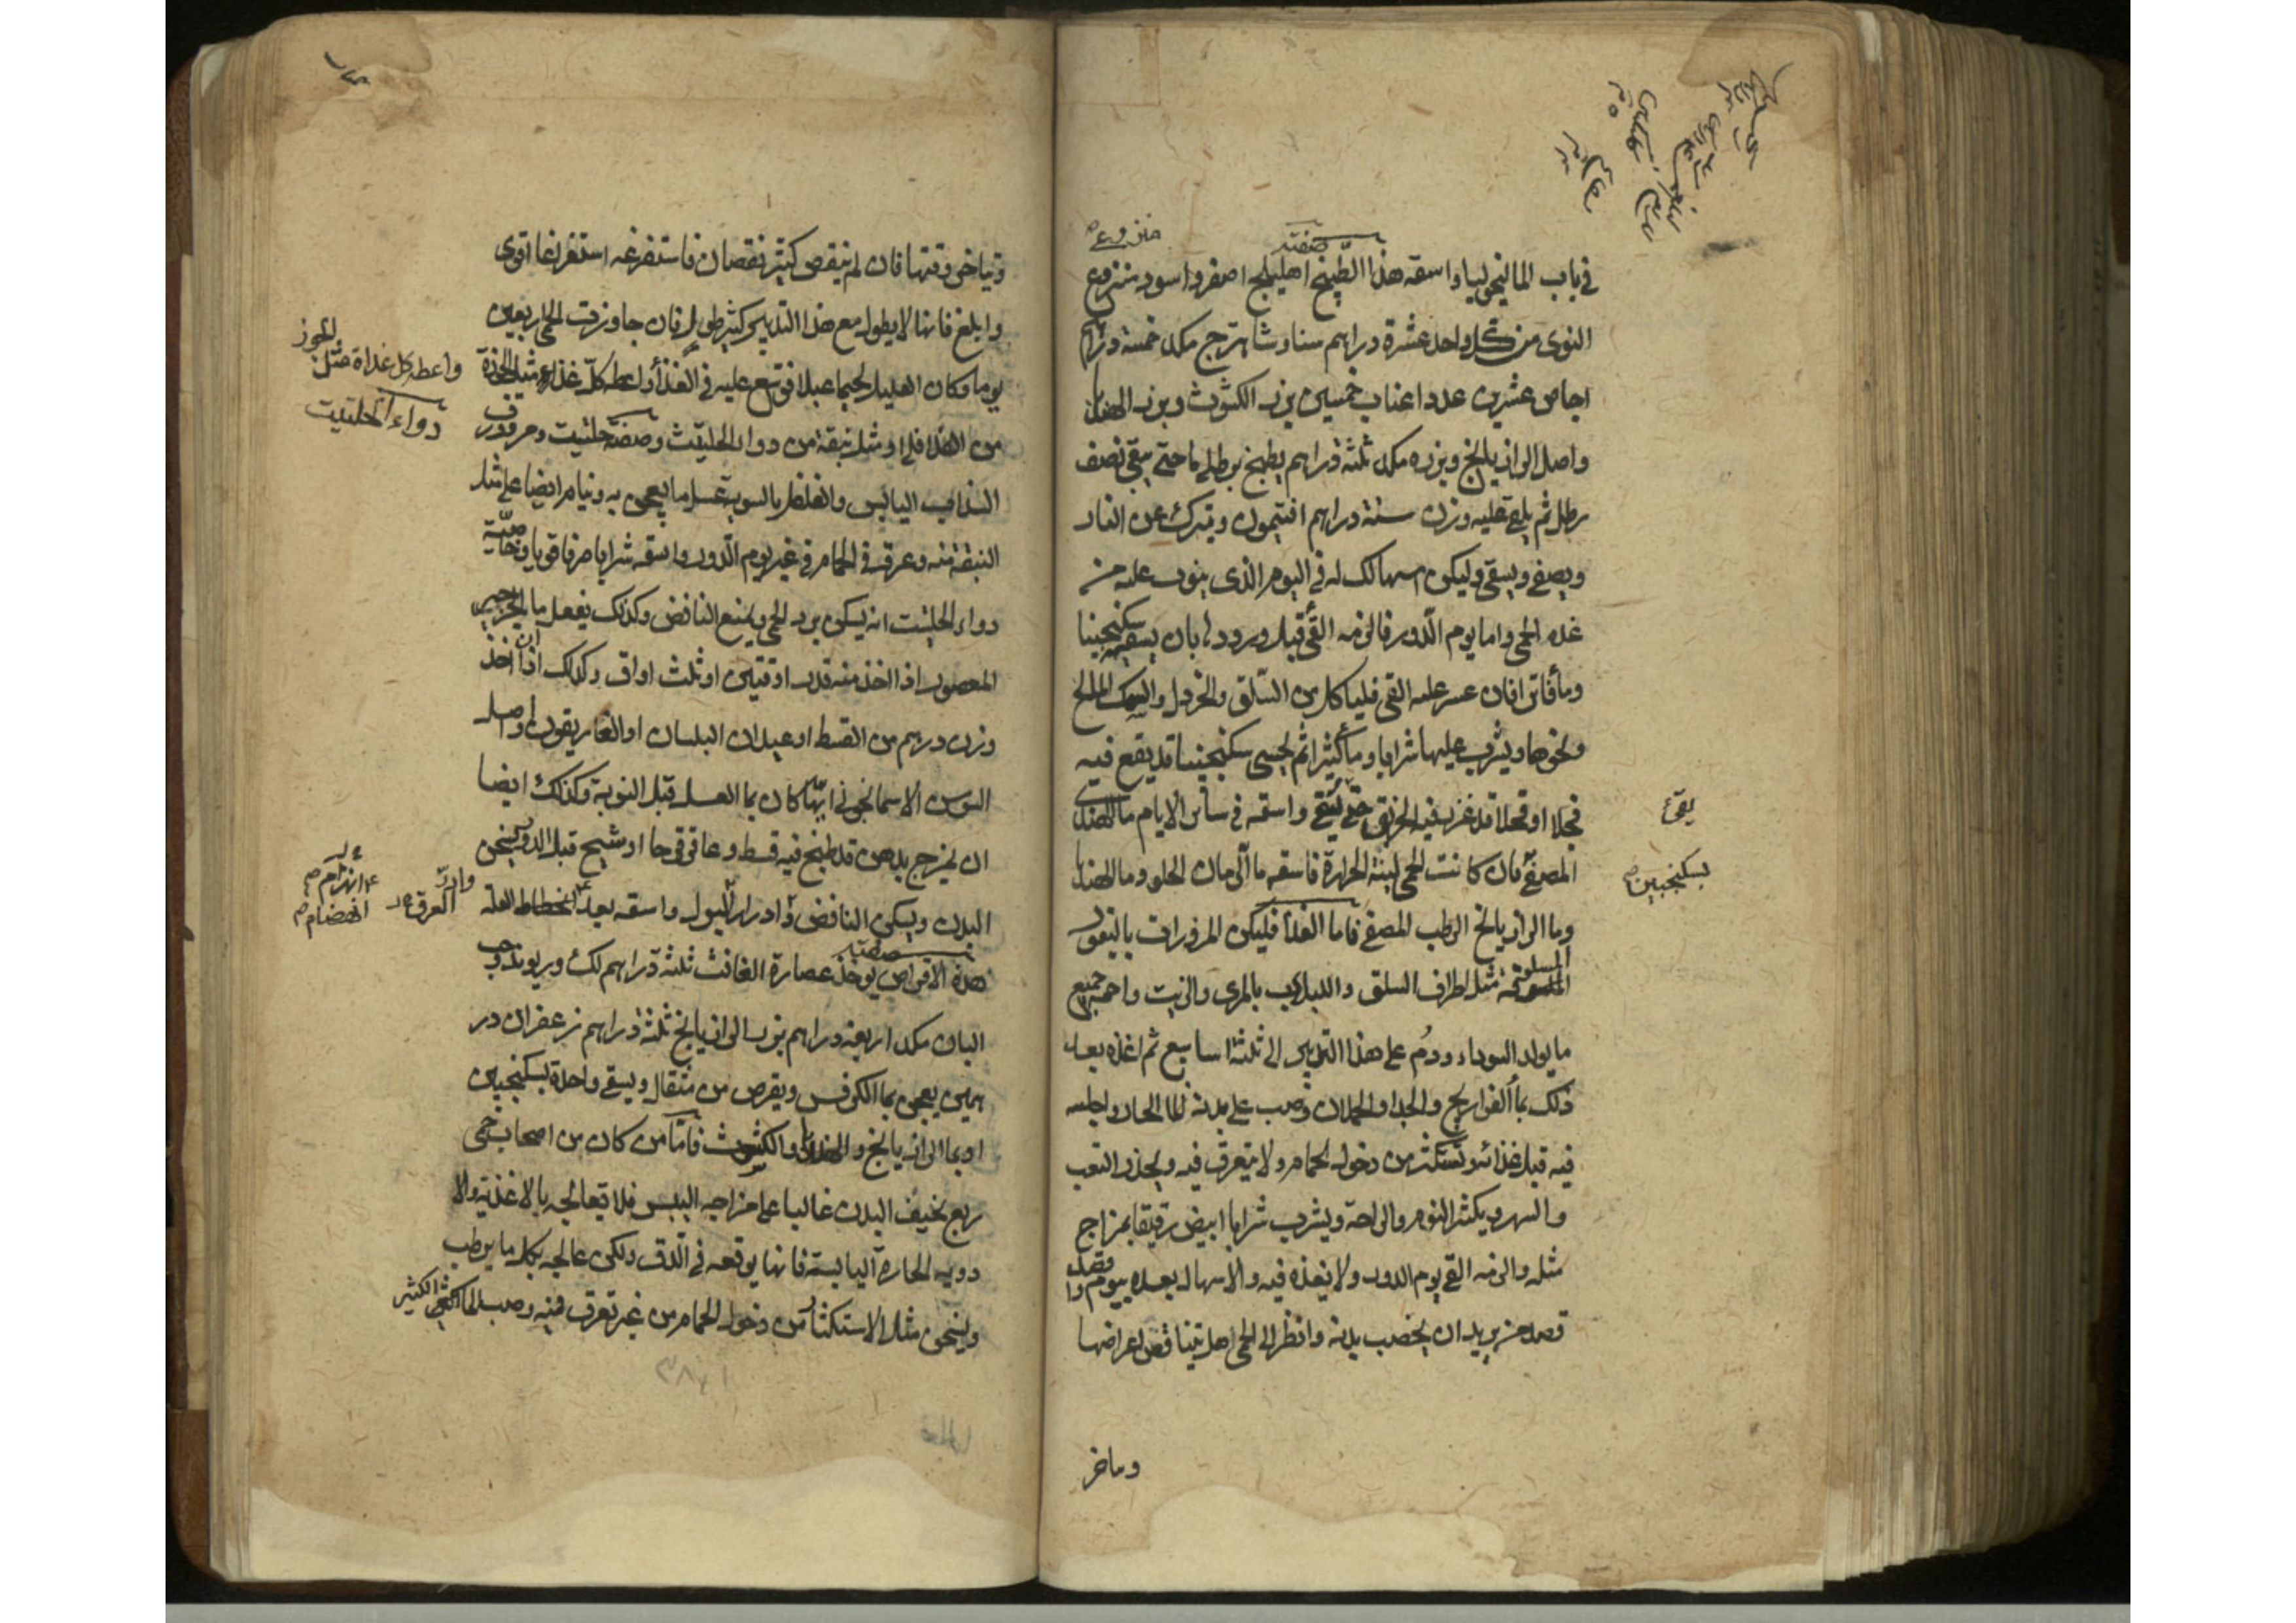 في باب الماليخوليا واسقه هذا الطبيخ صفته اهليلج اصفر واسود منزوع
النوى من كل واحد عشرة دراهم سنا وشاهترج مكد خمسة دراهم
اجاص عشرين عددا عناب خمسين بزر الكشوث وبزر الهندبا
واصل الرازيانج وبزره مكد ثلثة دراهم يطبخ برطلي ما حتى يبقى نصف
رطل ثم يلقى عليه وزن ستة دراهم افتيمون ويترك عن النار
ويصفى ويسقى وليكن اسهالك له في اليوم الذي ينوب عليه من
غده الحمى واما يوم الدور فالزمه القئ قبل ورودها بان يسقيه سكنجبينا
ومأ فاترا فان عسر عليه القي فلياكل من السلق والخردل والسمك المالح
ونحوها ويشرب عليها شرابا ومأ كثيرا ثم يحسى سكنجبينا قد يقع فيه
فجلا او فجلا قد غرز فيه الخربق حتى يتقيأ واسقه في سائر الايام ما الهندبا
المصفى فان كانت الحمى لينة الحرارة فاسقه ما الرمان الحلو وما الهندبا
وما الرازيانج الرطب المصفى فاما الغذأ فليكن المزورات بالبقول
المسلوقة مثل اطراف السلق واللبلاب بالمرى والزيت واحمه جميع
ما يولد السوداء ودم على هذا التدبير الى ثلثة اسابيع ثم اغذه بعد
ذلك بمأ الفراريج والجدا والحملان وصب على بدنه الما الحار واجلسه
فيه قبل غذائه وتستكثر من دخول الحمام ولا يتعرق فيه ويحذر التعب
والسهر ويكثر النوم والراحة ويشرب شرابا ابيض رقيقا بمزاج
مثله والزمه القي يوم الدور ولا يغذه فيه والاسهال بعده بيوم واقصد
قصد من يريد ان يخصب بدنه وانظر الى الحمى هل يتناقص اعراضها
يتقئ
بسكنجبين
وماخر
وتياخر وقتها فان لم ينقص كثير نقصان فاستفرغه استفراغا اقوى
وابلغ فانها لا يطول مع هذا التدبير كثير طول فان جاوزت الحمى اربعين
يوما وكان العليل لحيما عبلا فوسع عليه في الغذأ واعطه كل غذاة مثل الجوزة
من الفلافلي او مثل نبقة من دواء الحلتيت وصفته حلتيت ومر وورق
السذاب اليابس والفلفل بالسوية عسل ما يعجن به وينام ايضا على مثل
النبقة منه وعرقه في الحمام في غير يوم الدور واسقه شرابا صرفا قويا وخاصية
دواء الحلتيت انه يسكن برد الحمى ويمنع النافض وكذلك يفعل ما الجرجير
المعصور اذا اخذ منه قدر اوقيتين او ثلث اواق وكذلك اذا ان اخذ
وزن درهم من القسط او عيدان البلسان او الغاريقون واصل
السوسن الاسمانجوني ايها كان بما العسل قبل النوبة وكذلك ايضا
ان يمزج بدهن قد طبخ فيه قسط وعاقرقرحا او شيح قبل الدور يسخن
البدن ويسكن النافض وادرار البول واسقه بعد انحطاط العلة
هذه الاقراص صفتها يوخذ عصارة الغافث ثلثة دراهم لك وريوند وحب
البان مكد اربعة دراهم بزر الرازيانج ثلثة دراهم زعفران در
همين يعجن بما الكرفس ويقرص من مثقال ويسقى واحدة بسكنجبين
او بما الرازيانج والهندبا والكشوث فاما من كان من اصحاب حمى
ربع نحيف البدن غالبا على مزاجه اليبس فلا تعالجه بالاغذية والا
دويه الحارة اليابسة فانها يوقعه في الدق ولكن عالجه بكل ما يرطب
ويسخن مثل الاستكثار من دخول الحمام من غير تعرق فيه وصب الما الكثير
واعطه كل غداة مثل الجوز
دواء الحلتيت
وادر العرق
انهزام
انهضام